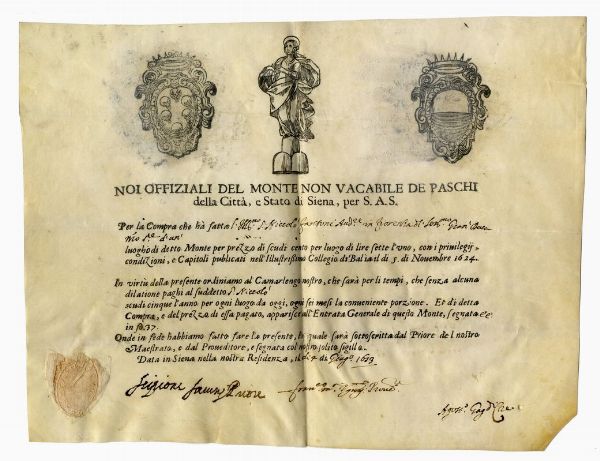 NOI OFFIZIALI DEL MONTE NON VACABILE DE PASCHI
della Città, e Stato di Siena, per S. A. S.
Per la Compra che hà fatta l' Niccolò in
luoghi di detto Monte per prezzo di scudi cento per luogo di lire sette l'uno, con i privilegij,
condizioni, e Capitoli publicati nell'Illustrissimo Collegio di Balia il dì 5. di Novembre 1624.
In virtù della presente ordiniamo al Camarlengo nostro, che sarà per li tempi, che senza alcuna
dilatione paghi al suddetto Sr. Niccolò
scudi cinque l'anno per ogni luogo da oggi, ogni sei mesi la conveniente porzione. Et di detta
Compra, e del prezzo di essa pagato, apparisce all'Entrata Generale di questo Monte, segnata
in fo. 37.
Onde in fede habbiamo fatto fare la presente, la quale sarà sottoscritta dal Priore del nostro
Maestrato, e dal Proveditore, e segnata col nostro solito sigillo.
Data in Siena nella nostra Residenza, il dì